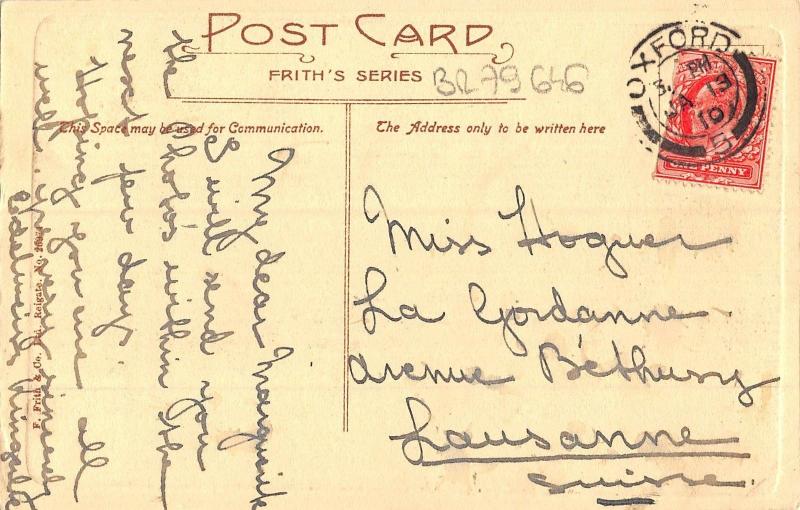 POST CARD
FRITH'S SERIES
BR79646
This Space may be used for Communication.
The Address only to be written here
OXFORD
PM
JA 13
10
5
ONE PENNY
Miss Hoguer
La Gordanne
avenue Béthusy
Lausanne
Suisse.
My dear Marguerite
I will send you
the Photo's within the
next few days.
Hoping you are all
well. yrs very sincerely
F. Frith & Co. Ltd., Reigate. No.